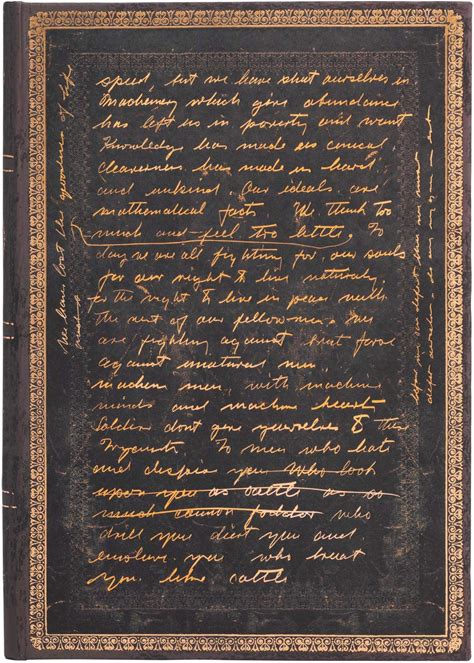 speed, but we have shut ourselves in
Machinery which give abundance
has left us in poverty and want
Knowledge has made us cynical
cleaverness has made us hard
and unkind. Our ideals are
mathematical facts. We think too
much and feel too little. To
day we are all fighting for our souls
for our right to live natural,
for the right to live in peace with
the rest of our fellowmen. We
are fighting against brut force
against unatural men,
machien men, with machine
minds and machine hearts
Soldiers dont give yourselves to the
To men who hate
and despise you who look
upon you as cattle as so
much cannon fodder who
drill you diet you and
enslave you who treat
you like cattle
We have lost the of life